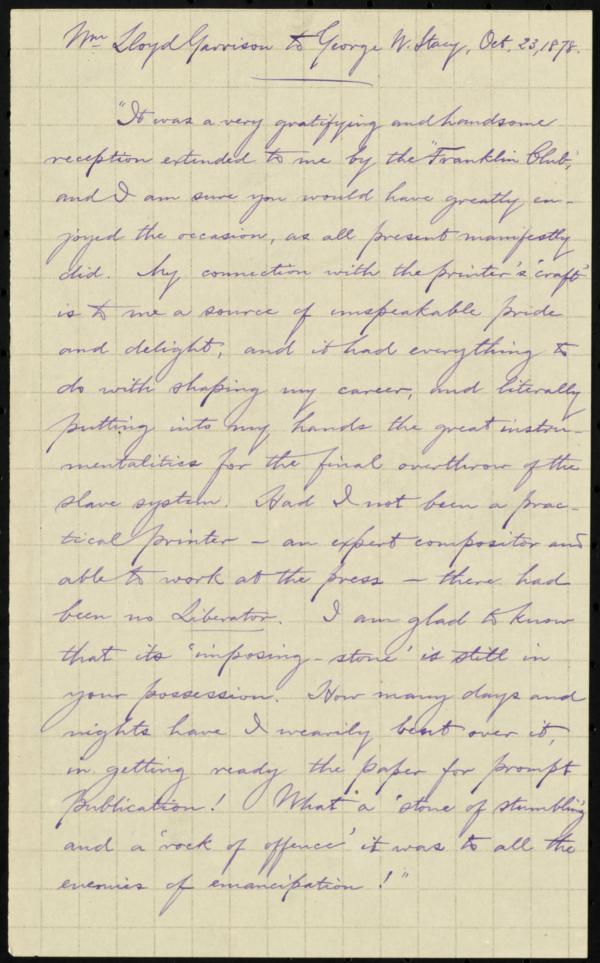 Wm Lloyd Garrison to George W. Stacy, Oct. 23, 1878.
"It was a very gratifying and handsome
reception extended to me by the "Franklin Club",
and I am sure you would have greatly en-
joyed the occasion, as all present manifestly
did. My connection with the printer's 'craft'
is to me a source of unspeakable pride
and delight; and it had everything to
do with shaping my career, and literally
putting into my hands the great instru-
mentalities for the final overthrow of the
slave system. Had I not been a prac-
tical printer – an expert compositor and
able to work at the press – there had
been no Liberator. I am glad to know
that its 'imposing-stone' is still in
your possession. How many days and
nights have I wearily bent over it,
in getting ready the paper for prompt
publication! What a 'stone of stumbling'
and a 'rock of offence' it was to all the
enemies of emancipation!"